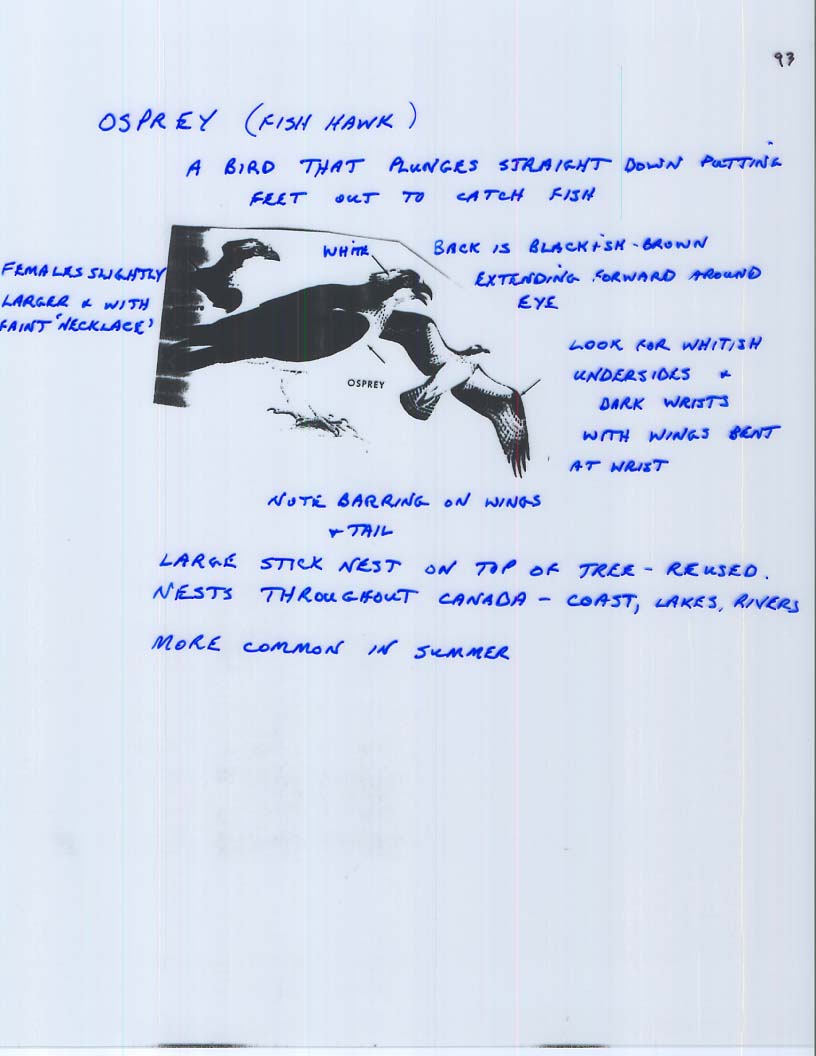 93
OSPREY (FISH HAWK)
A BIRD THAT PLUNGES STRAIGHT DOWN PUTTING
FEET OUT TO CATCH FISH
WHITE
BACK IS BLACKISH-BROWN
EXTENDING FORWARD AROUND
EYE
FEMALES SLIGHTLY
LARGER & WITH
FAINT 'NECKLACE'
LOOK FOR WHITISH
UNDERSIDES &
DARK WRISTS
WITH WINGS BENT
AT WRIST
OSPREY
NOTE BARRING ON WINGS
& TAIL
LARGE STICK NEST ON TOP OF TREE - REUSED.
NESTS THROUGHOUT CANADA - COAST, LAKES, RIVERS
MORE COMMON IN SUMMER